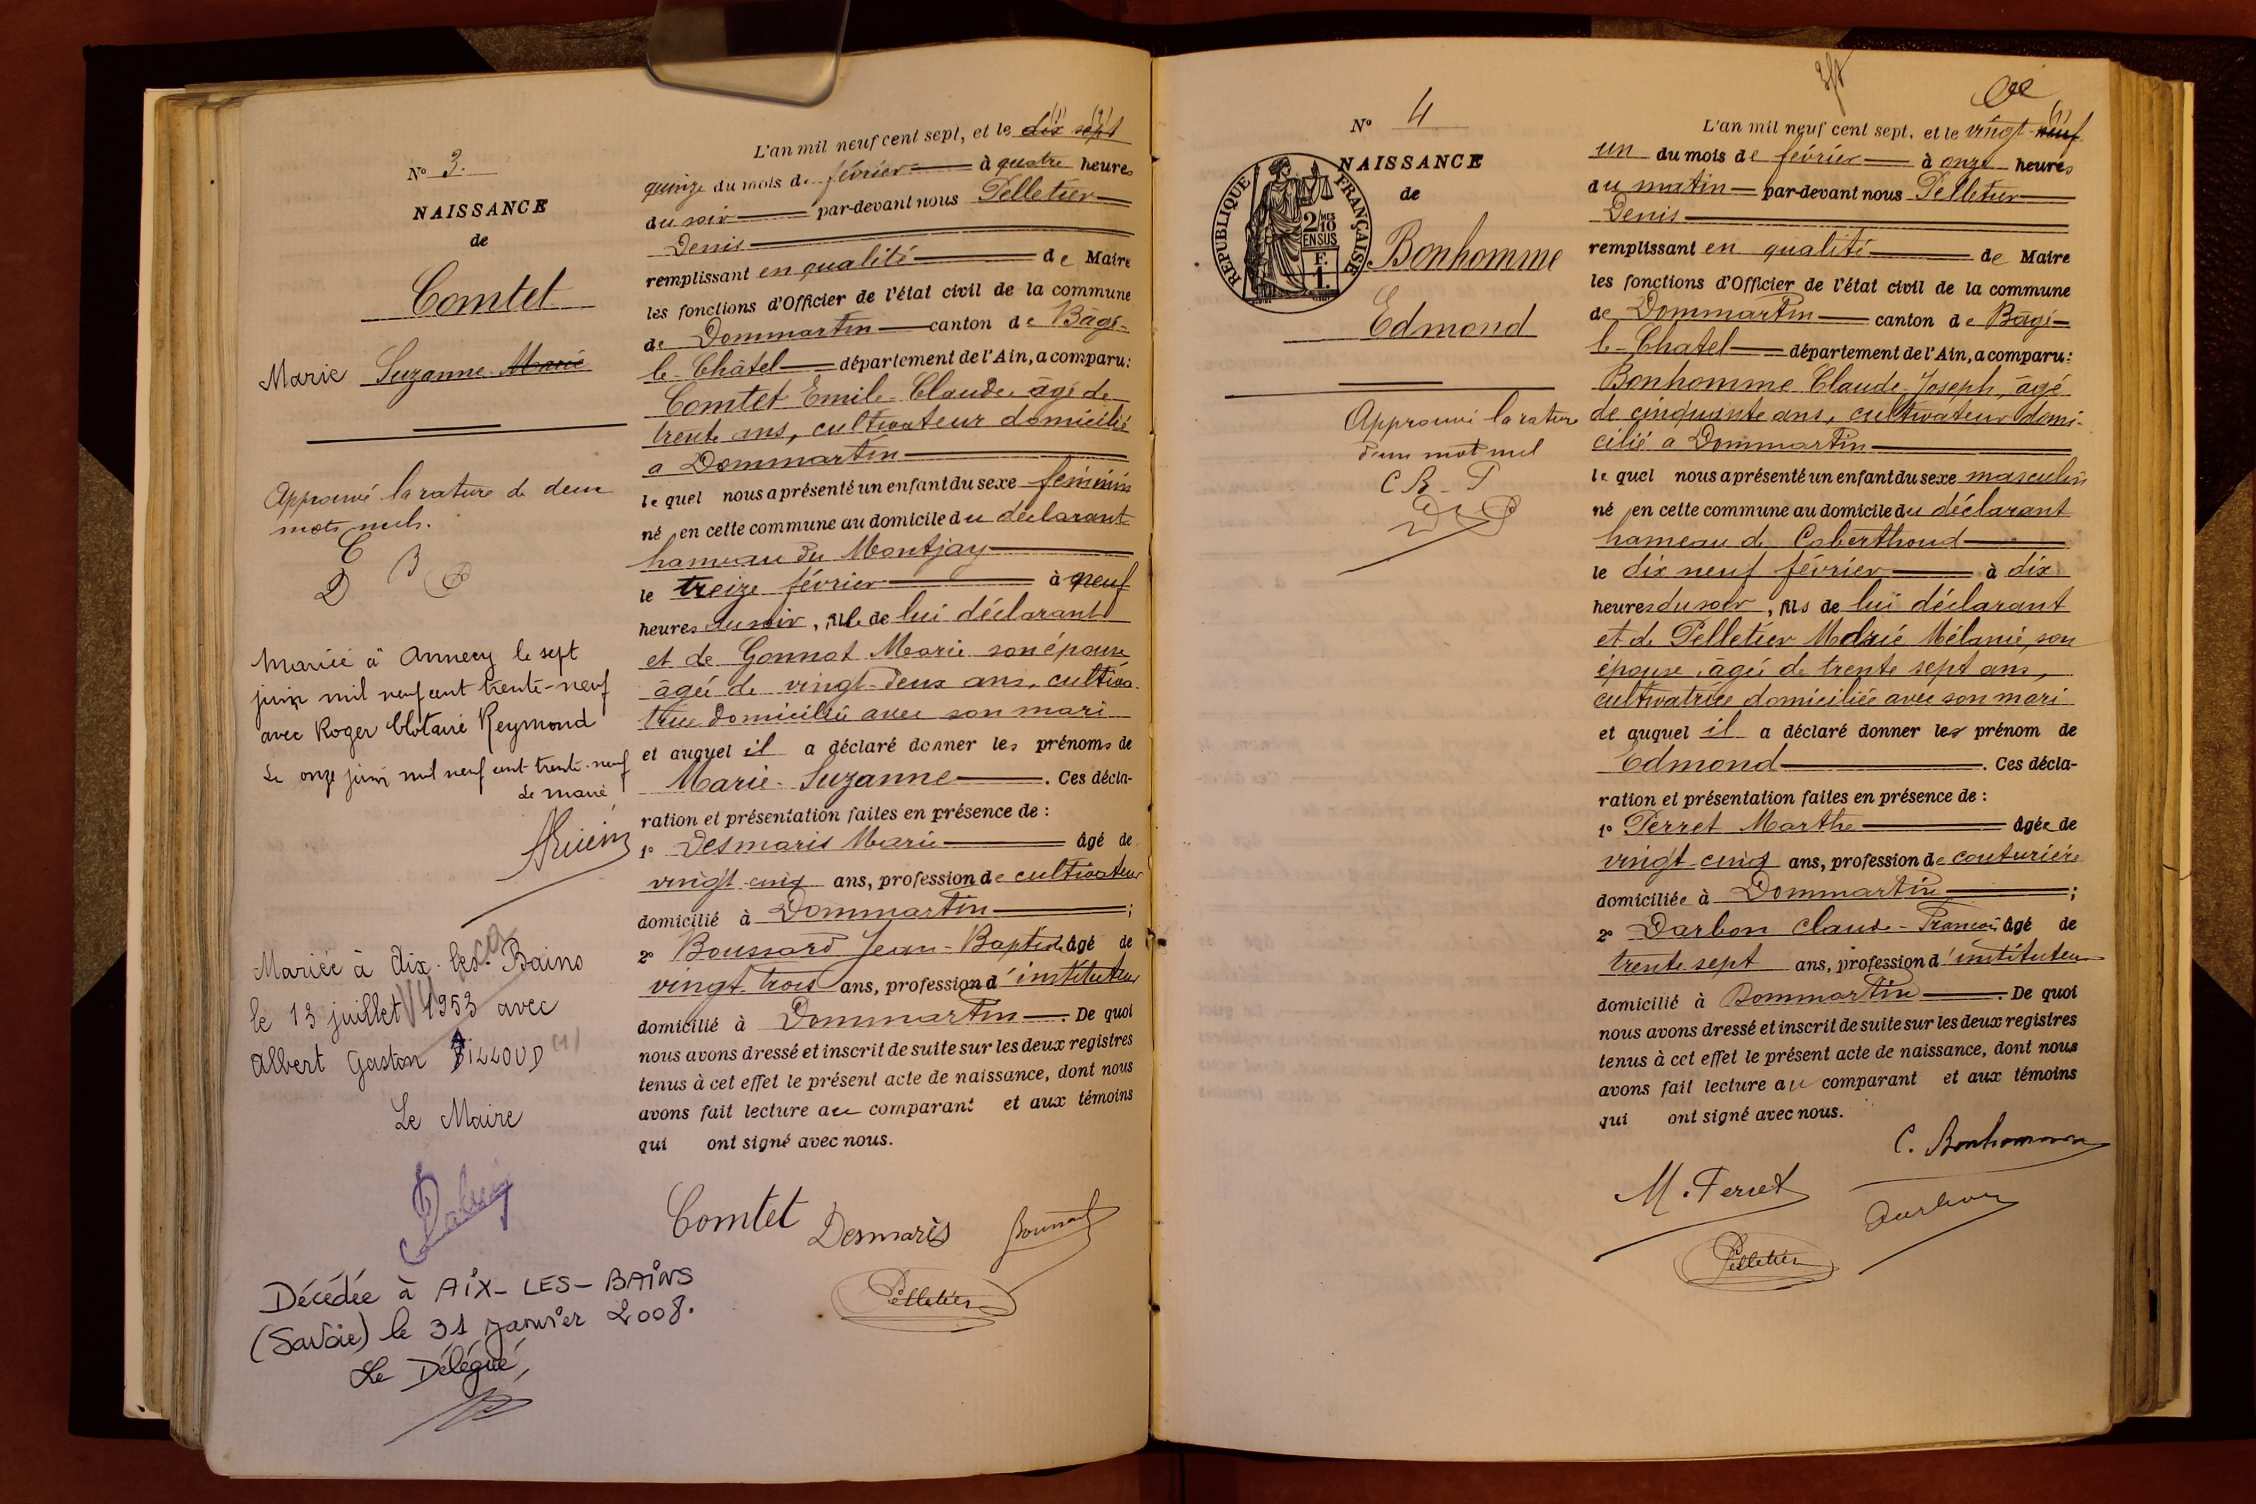 L'an mil neuf cent sept, et le dix sept
quinze du mois de février à quatre heures
du soir par-devant nous Pelletier
Denis
remplissant en qualité de Maire
les fonctions d'Officier de l'état civil de la commune
de Dommartin canton de Bâgé-
le-Châtel département de l'Ain, a comparu:
Comtet Emile-Claude âgé de
trente ans, cultivateur domicilié
a Dommartin
lequel nous a présenté un enfant du sexe féminin
né en cette commune au domicile du déclarant
hameau du Montjay
le treize février à neuf
heures du soir, fille de lui déclarant
et de Gonnot Marie son épouse
âgée de vingt-deux ans, cultiva-
trice domiciliée avec son mari
et auquel il a déclaré donner les prénoms de
Marie-Suzanne. Ces décla-
ration et présentation faites en présence de :
1° Desmaris Marie âgé de
vingt-cinq ans, profession de cultivateur
domicilié à Dommartin ;
2° Boussard Jean-Baptiste âgé de
vingt trois ans, profession d'instituteur
domicilié à Dommartin. De quoi
nous avons dressé et inscrit de suite sur les deux registres
tenus à cet effet le présent acte de naissance, dont nous
avons fait lecture au comparant et aux témoins
qui ont signé avec nous.
Comtet Desmaris
Pelletier
N° 3.
NAISSANCE
de
Comtet
Marie Suzanne Marie
Approuvé la rature de deux
mots nuls.
C
D B
Mariée à Annecy le sept
juin mil neuf cent trente-neuf
avec Roger Clotaire Reymond
Le onze juin mil neuf cent trente-neuf
Le maire
Mariée à Aix-les-Bains
le 13 juillet 1953 avec
Albert Gaston PILLOUD (1)
Le Maire
Décédée à AIX-LES-BAINS
(Savoie) le 31 janvier 2008.
Le Délégué,
N° 4
NAISSANCE
de
Bonhomme
Edmond
RÉPUBLIQUE FRANÇAISE
2/10MES
EN SUS
F.
1.
Approuvé la rature
d'un mot nul
C B P
L'an mil neuf cent sept, et le vingt-neuf
un du mois de février à onze heures
du matin par-devant nous Pelletier
Denis
remplissant en qualité de Maire
les fonctions d'Officier de l'état civil de la commune
de Dommartin canton de Bâgé-
le-Chatel département de l'Ain, a comparu:
Bonhomme Claude-Joseph, âgé
de cinquante ans, cultivateur domi-
cilié a Dommartin
lequel nous a présenté un enfant du sexe masculin
né en cette commune au domicile du déclarant
hameau de Coberthoud
le dix neuf février à dix
heures du soir, fils de lui déclarant
et de Pelletier Marie Mélanie, son
épouse, agée de trente sept ans,
cultivatrice domiciliée avec son mari
et auquel il a déclaré donner les prénom de
Edmond. Ces décla-
ration et présentation faites en présence de :
1° Perret Marthe âgée de
vingt-cinq ans, profession de couturière
domiciliée à Dommartin ;
2° Darbon Claude-François âgé de
trente sept ans, profession d'instituteur
domicilié à Dommartin. De quoi
nous avons dressé et inscrit de suite sur les deux registres
tenus à cet effet le présent acte de naissance, dont nous
avons fait lecture au comparant et aux témoins
qui ont signé avec nous.
C. Bonhomme
M. Perret Darbon
Pelletier